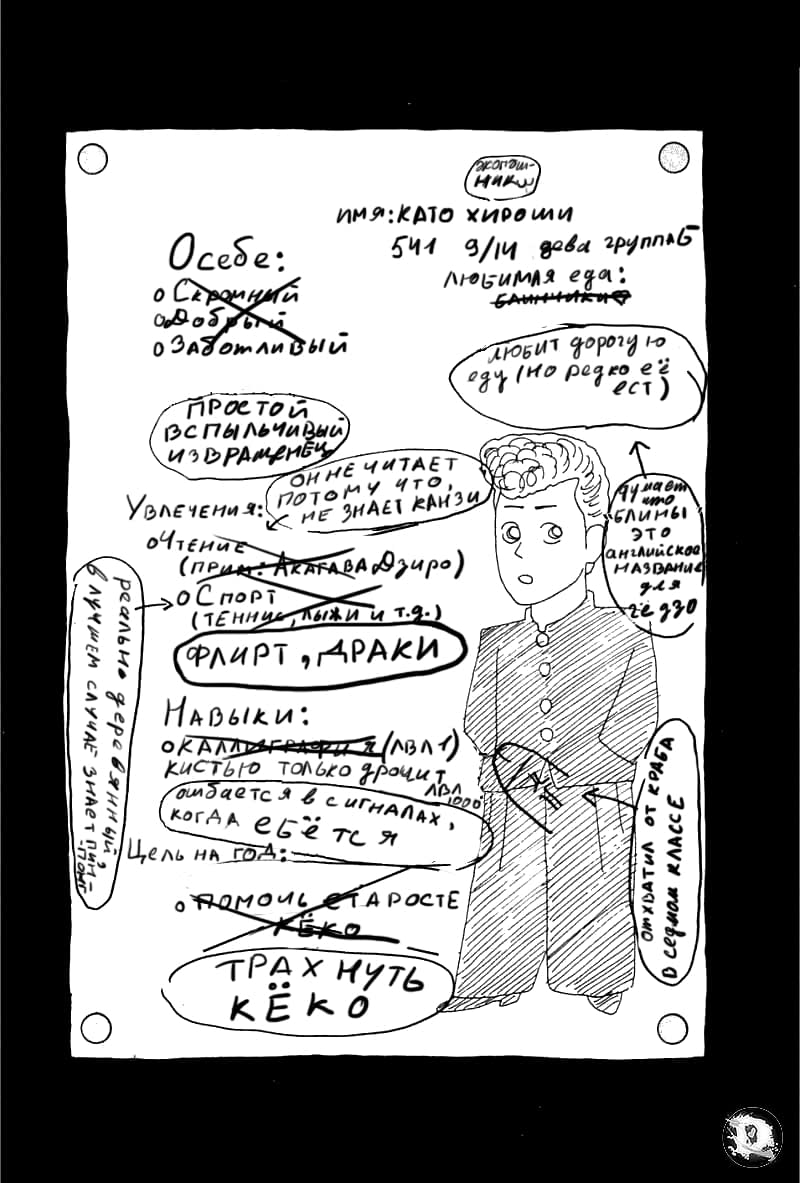 ИМЯ: КАТО ХИРОШИ
541 9/14 дева группа Б
ЛЮБИМАЯ еда:
БЛИНЧИКИ
ЛЮБИТ ДОРОГУЮ
ЕДУ (НО РЕДКО ЕЁ
ЕСТ)
ДУМАЕТ
ЧТО
БЛИНЫ
ЭТО
АНГЛИЙСКОЕ
НАЗВАНИЕ
ДЛЯ
ГЁДЗО
О себе:
о Скромный
о Добрый
о Заботливый
ПРОСТОЙ
ВСПЫЛЬЧИВЫЙ
ИЗВРАЩЕНЕЦ
Увлечения:
ОН НЕ ЧИТАЕТ
ПОТОМУ ЧТО,
НЕ ЗНАЕТ КАНЗИ
о Чтение
(ПРИМ: АКАГАВА Дзиро)
о Спорт
(ТЕННИС, ЛЫЖИ И Т.Д.)
реально деревянный,
в лучшем случае знает пин-
-понг
ФЛИРТ, ДРАКИ
Навыки:
о КАЛЛИГРАФИЯ (ЛВЛ 1)
КИСТЬЮ ТОЛЬКО ДРОЧИТ
ЛВЛ
1000
ошибается в сигналах,
когда ЕБЁТСЯ
Цель на год:
о ПОМОЧЬ СТАРОСТЕ
КЁКО
ТРАХНУТЬ
КЁКО
ОТХВАТИЛ ОТ КРАБА
В СЕДМОМ КЛАССЕ